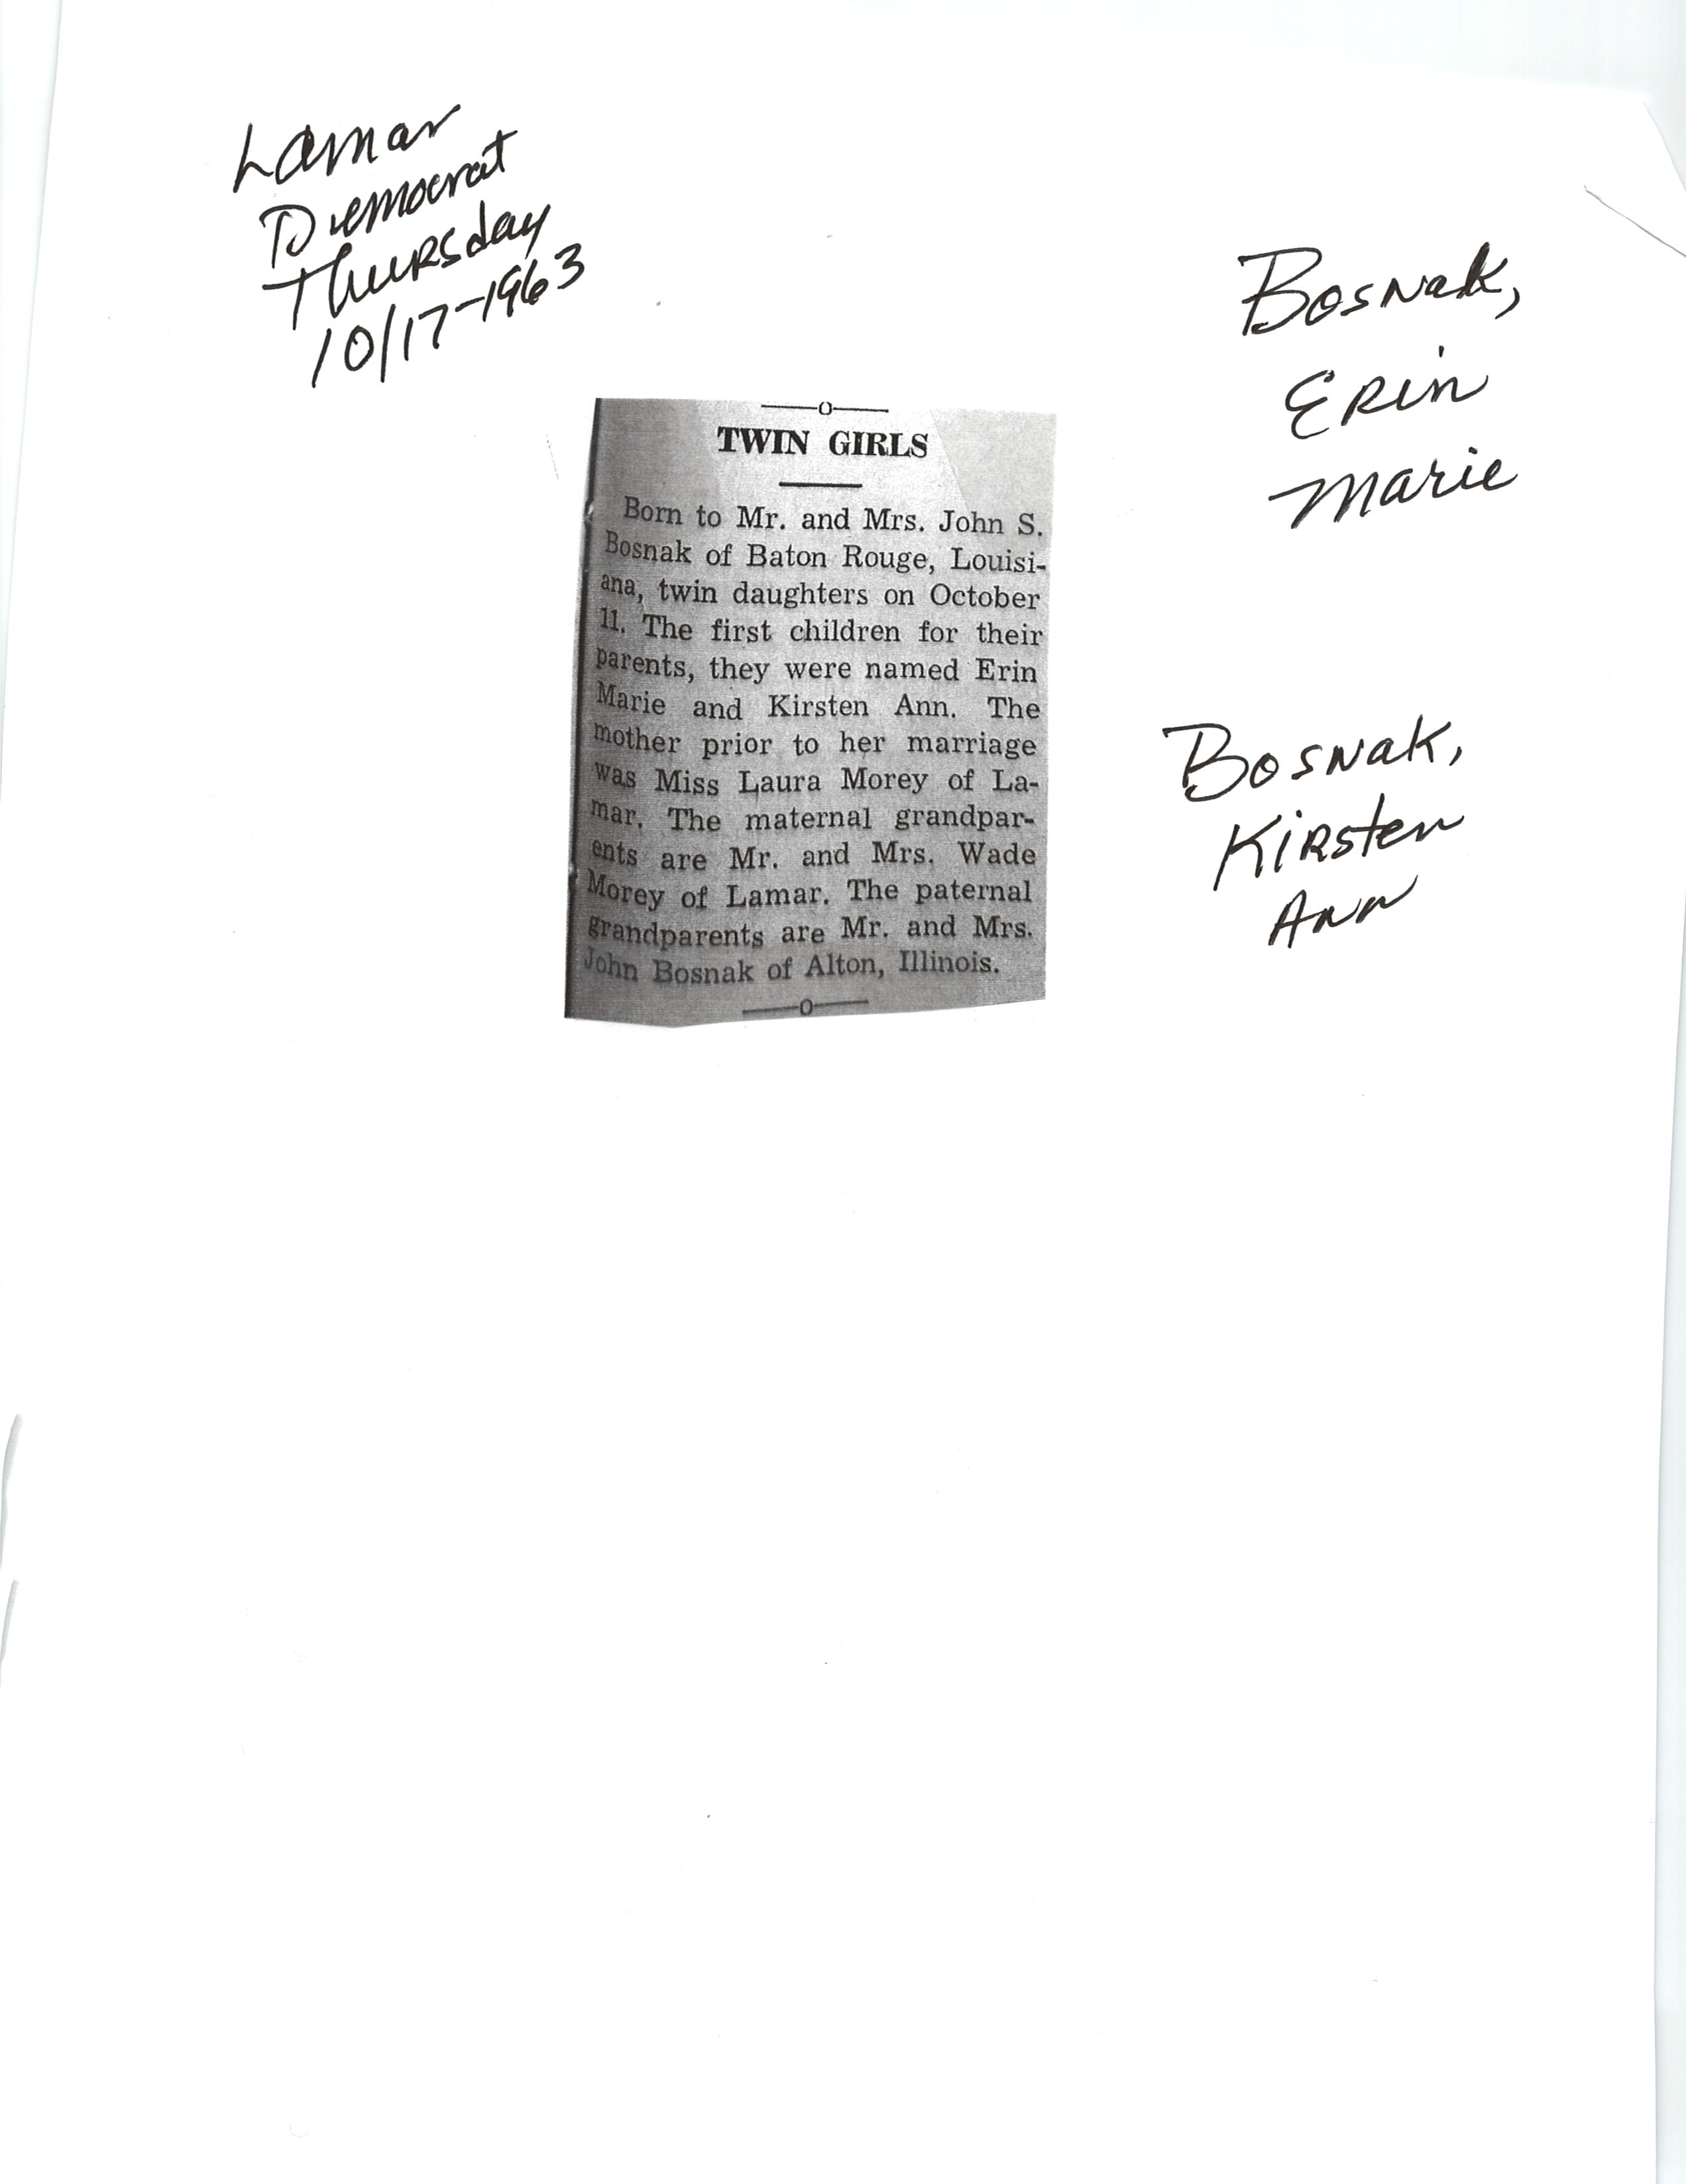 Lamar
Democrat
Thursday
10/17-1963
Bosnak,
Erin
Marie
Bosnak,
Kirsten
Ann
TWIN GIRLS
Born to Mr. and Mrs. John S.
Bosnak of Baton Rouge, Louisi-
ana, twin daughters on October
11. The first children for their
parents, they were named Erin
Marie and Kirsten Ann. The
mother prior to her marriage
was Miss Laura Morey of La-
mar. The maternal grandpar-
ents are Mr. and Mrs. Wade
Morey of Lamar. The paternal
grandparents are Mr. and Mrs.
John Bosnak of Alton, Illinois.